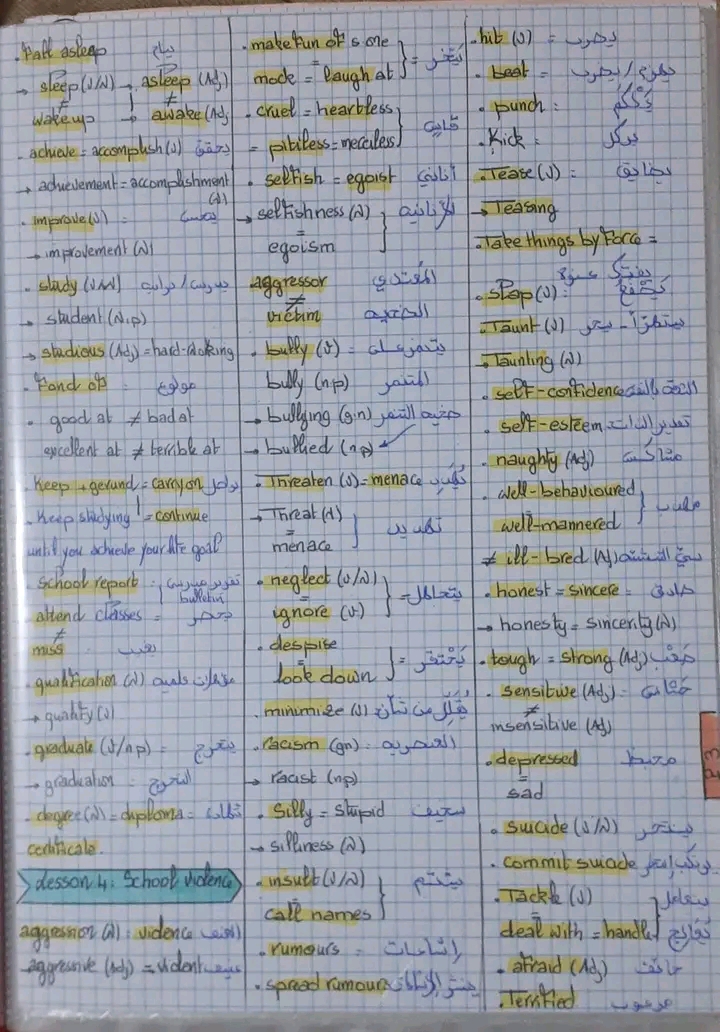 . Fall asleep ينام
→ sleep (v/N) → asleep (Adj)
≠ ≠
wake up → awake (Adj)
. achieve = accomplish (v) يحقق
→ achievement = accomplishment
(N)
. improve (v) : يحسن
→ improvement (N)
. study (v/N) يدرس / دراسة
→ student (N.p)
→ studious (Adj) = hard-woking
. Fond of : مولوع
. good at ≠ bad at
excellent at ≠ terrible at
. Keep + gerund = carry on يواصل
. Keep studying = continue
until you achieve your life goal
. School report : تقرير مدرسي
bulletin
attend classes = يحضر
≠
miss يغيب
. qualification (N) مؤهلات علمية
→ qualify (v)
. graduate (v/n p) = يتخرج
→ graduation : التخرج
. degree (N) = diploma = شهادة
certificate.
Lesson 4 : School violence
aggression (N) : violence العنف
aggressive (Adj) = violent عنيف
. make fun of s.one
mock = laugh at } = يسخر
. cruel = heartless
= pitiless = merciless } قاسي
. selfish = egoist أناني
→ selfishness (N)
=
egoism } الأنانية
aggressor المعتدي
≠
victim الضحية
. bully (v) = يتنمر على
bully (n p) المتنمر
→ bullying (g.n) التنمر
→ bullied (n p)
. Threaten (v) = menace يهدد
→ Threat (N)
=
menace } تهديد
. neglect (v/N)
=
ignore (v) } = يتجاهل
. despise
=
look down } = يحتقر
. minimize (v) يقلل من شأن
. racism (gn) : العنصرية
→ racist (n p)
. Silly = stupid سخيف
→ silliness (N)
. insult (v/N)
=
call names } يشتم
. rumours = إشاعات
. spread rumours ينشر الإشاعات
. hit (v) = يضرب
. beat = يهزم / يضرب
. punch : يلكم
. Kick : يركل
. Tease (v) : يضايق
→ Teasing
. Take things by Force =
يفتك عنوة
. slap (v) : يصفع
. Taunt (v) يستهزأ - يسخر
→ Taunting (N)
. self-confidence الثقة بالنفس
. self-esteem تقدير الذات
. naughty (Adj) مشاكس
. well-behavioured
well-mannered } مهذب
≠ ill-bred (Adj)
. honest = sincere = صادق
→ honesty = sincerity (N)
. tough = strong (Adj) صعب
. sensitive (Adj) = حساس
≠
insensitive (Adj)
. depressed محبط
=
sad
. suicide (v/N) ينتحر
. commit suicide
. Tackle (v)
=
deal with = handle } يتعامل
يعالج
. afraid (Adj) خائف
. Terrified مرعوب